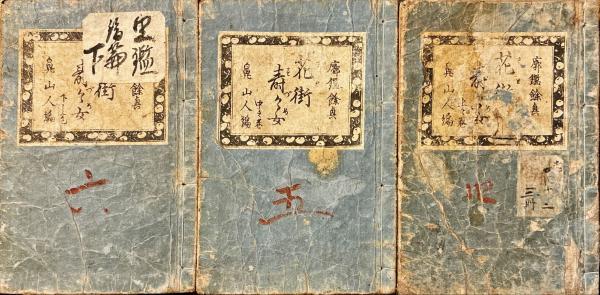 里鑑
後篇
下
餘興
街
壽々女
下之巻
鼻山人編
六
廓鑑餘興
花街
壽々女
中之巻
鼻山人編
五
廓鑑餘興
花街
上之巻
鼻山人編
四
二
三冊